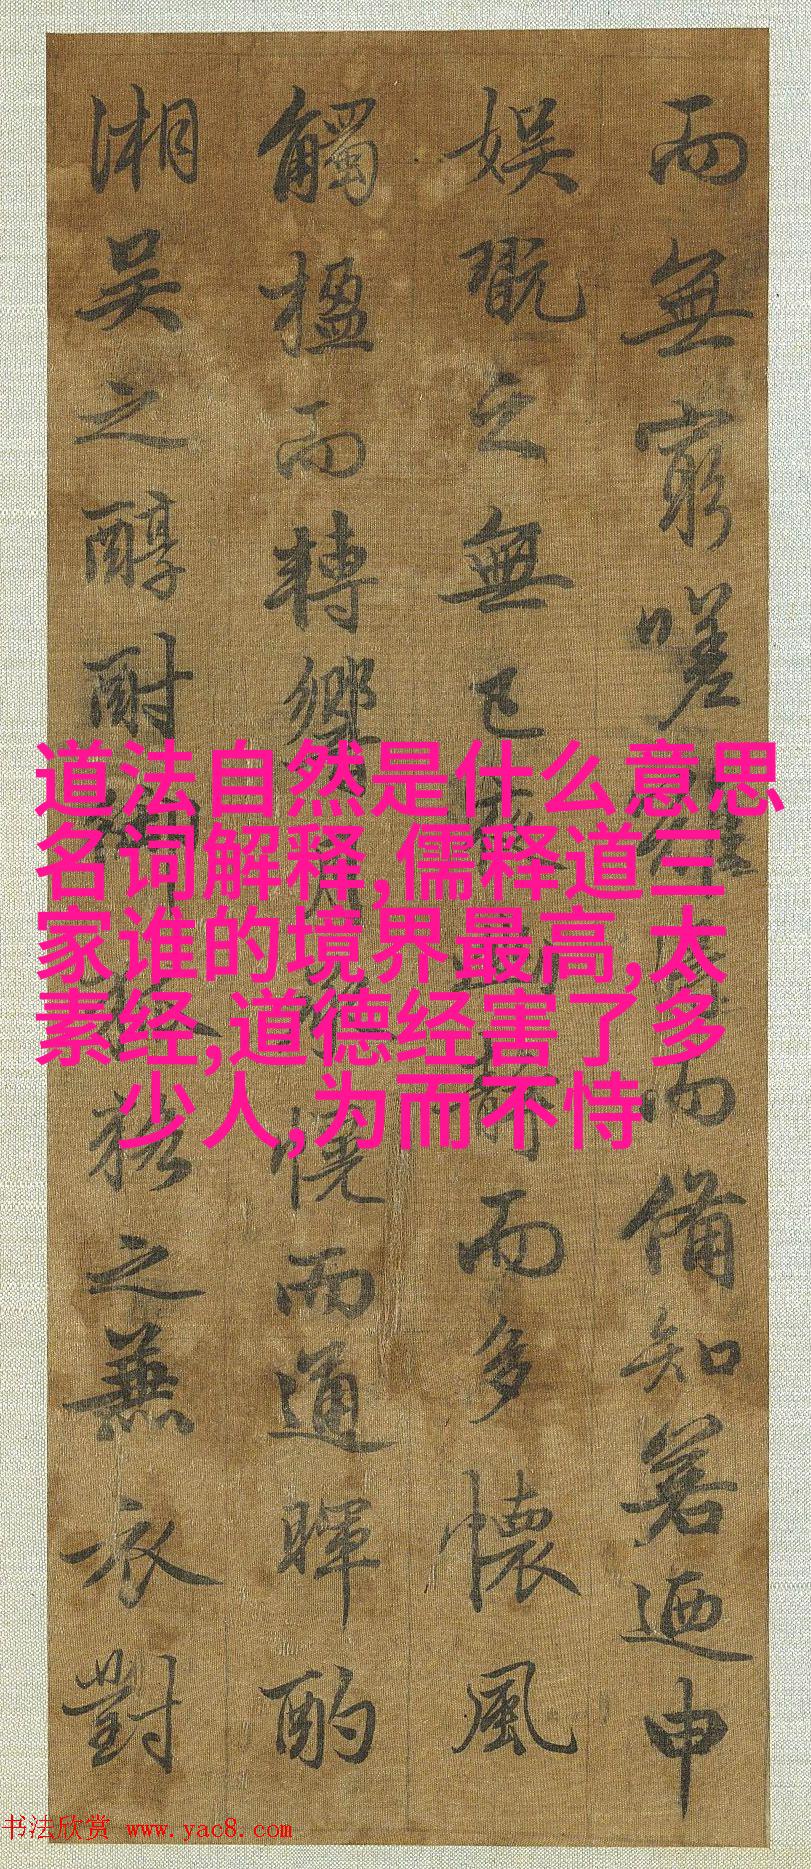 而無窮嗟難而備知若迺申
娛翫之無已靜而多懷風
觸楹而轉響恍而通暉酌
湘吳之醇酎之蕪衣對
道法自然是什么意思
名词解释,儒释道三
家谁的境界最高,太
素经,道德经害了多
少人,为而不恃
书法欣赏 www.yac8.com